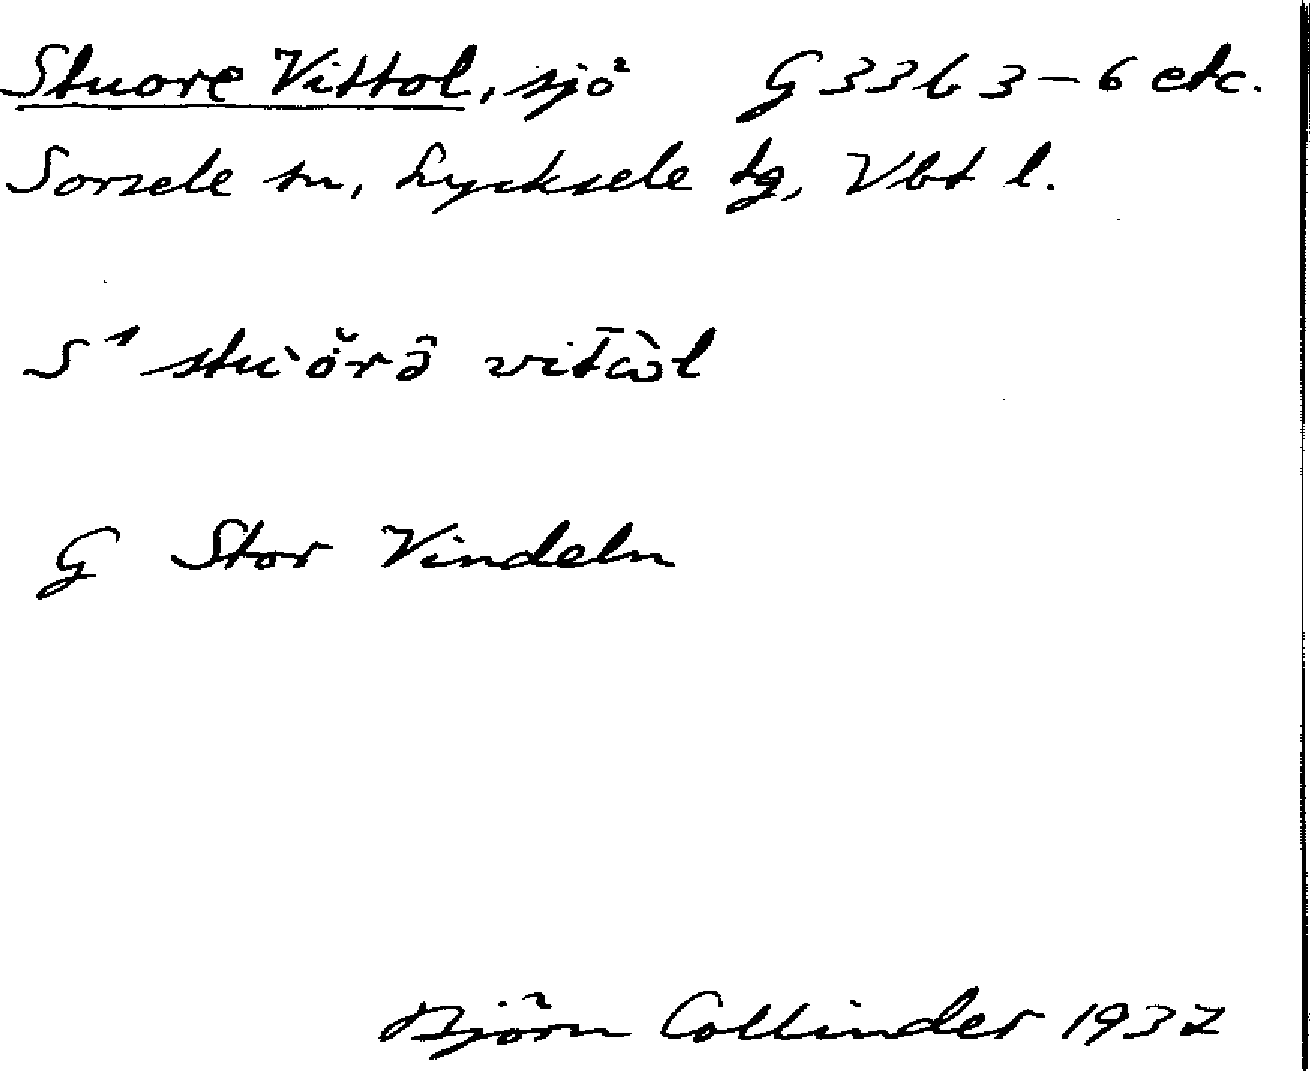 Stuore Vittol, sjö G 33 b 3-6 etc.
Sorsele sn, Lycksele tg, Vbt l.
S¹
G Stor Vindeln
Björn Collinder 1937